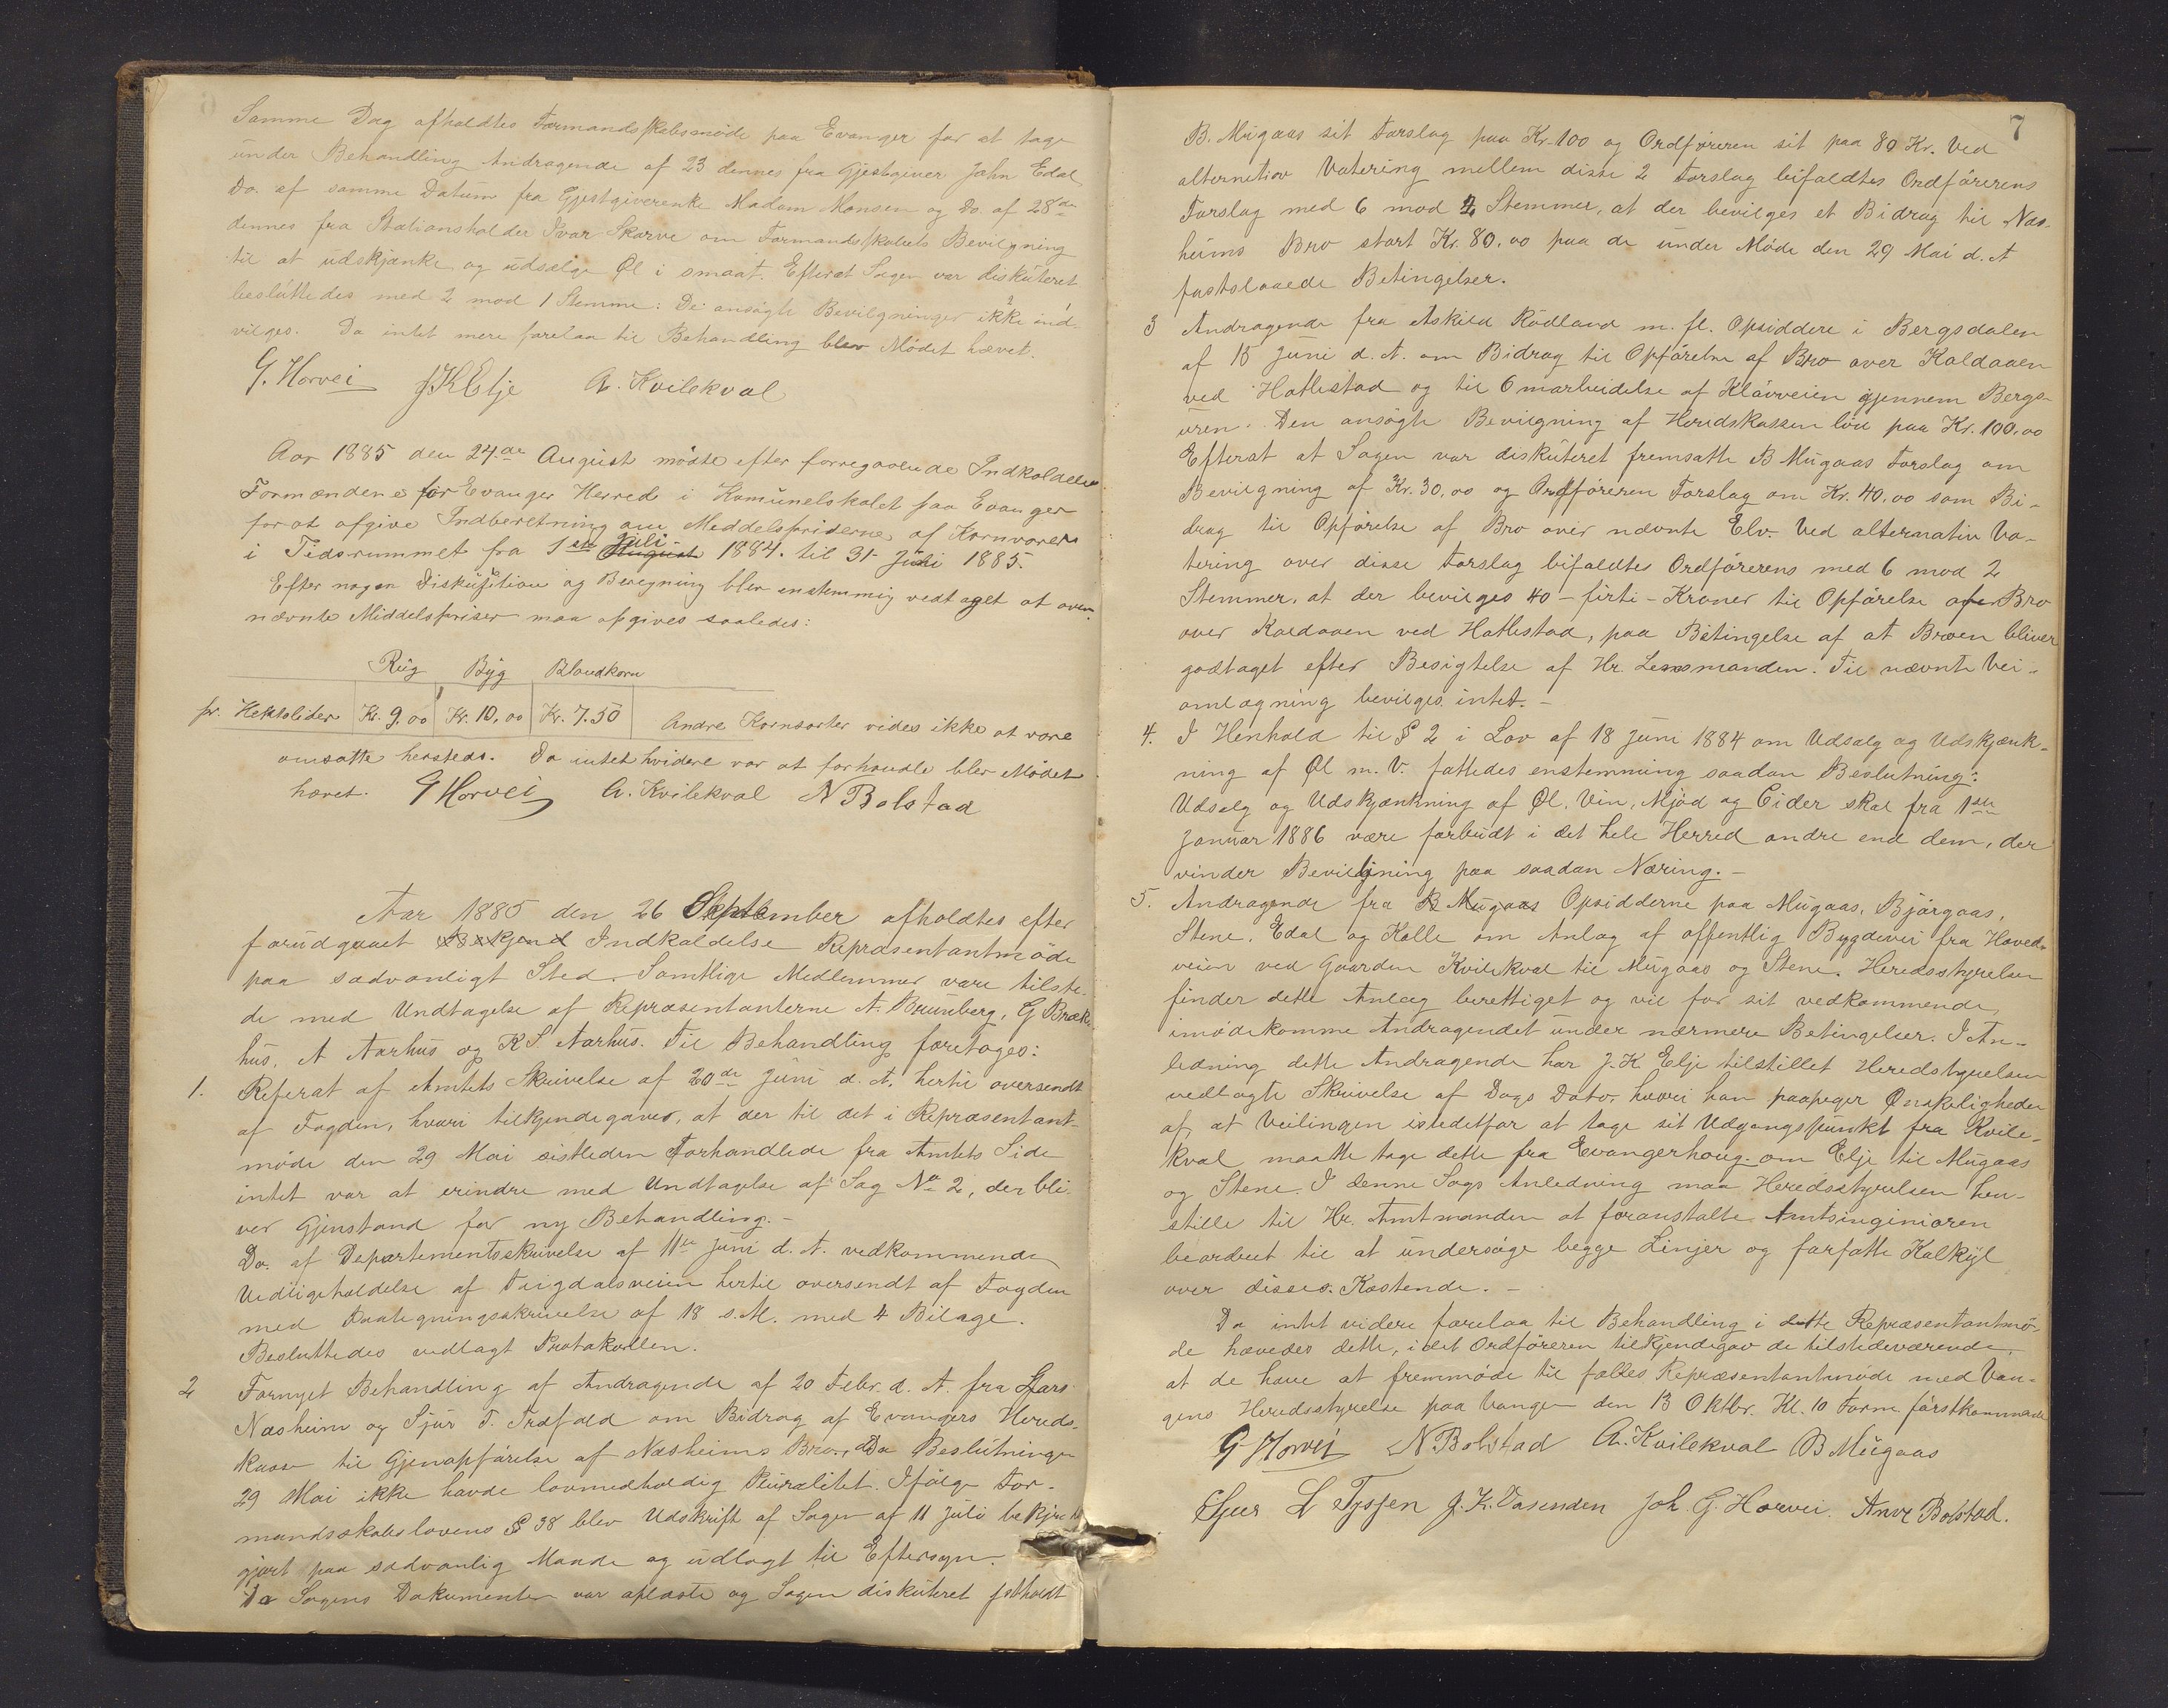 Samme Dag afholdtes Formandsskabsmøde paa Evanger for at tage
under Behandling Andragende af 23 dennes fra Gjestgiver John Edal
Do. af samme Datum fra Gjestgiverenke Madam Monsen og Do. af 28de
dennes fra Stationsholder Ivar Skorve om Formandsskabets Bevilgning
til at udskjænke og udsælge Øl i smaat. Efterat Sagen var diskuteret
besluttedes med 2 mod 1 Stemme: De ansøgte Bevilgninger ikke ind-
vilges. Da intet mere forelaa til Behandling blev Mødet hævet.
G. Horvei JKElje A. Kvilekval
Aar 1885 den 24de August mødte efter forregaaende Indkaldelse
Formændene for Evanger Herred i Komunelokalet paa Evanger
for at afgive Indberetning om Meddelspriderne af Kornvarer
i Tidsrummet fra 1ste August Juli 1884. til 31 Juli 1885.
Efter nogen Diskussion og Beregning blev enstemmig vedtaget at oven-
nævnte Middelspriser maa opgives saaledes:
Rug Byg Blandkorn
pr. Hektoliter Kr. 9.00 Kr. 10,00 Kr. 7.50 Andre Kornsorter vides ikke at være
omsatte hersteds. Da intet hvidere var at forhandle blev Mødet
hævet. G Horvei A. Kvilekval N Bolstad
Aar 1885 den 26 September afholdtes efter
forudgaaet Indkaldelse Repræsentantmøde
paa sædvanligt Sted. Samtlige Medlemmer vare tilste-
de med Undtagelse af Repræsentanterne A. Brunberg, G Bræk-
hus, A Aarhus og K S Aarhus. Til Behandling foretoges:
1. Referat af Amtets Skrivelse af 20de Juni d. A. hertil oversendt
af Fogden, hvori tilkjendegaves, at der til det i Repræsentant-
møde den 29 Mai sistleden Forhandlede fra Amtets Side
intet var at erindre med Undtagelse af Sag No 2, der bli-
ver Gjenstand for ny Behandling.-
Do. af Departementsskrivelse af 11te Juni d. A. vedkommende
Vedligeholdelse af Teigdalsveien hertil oversendt af Fogden
med Paategningsskrivelse af 18 s. M. med 4 Bilage.
Besluttedes vedlagt Protokollen.
2 Fornyet Behandling af Andragende af 20 Febr. d. A. fra Lars
Næsheim og Sjur T. Træfald om Bidrag af Evangers Hereds-
kasse til Gjenopførelse af Næsheims Bro, Da Beslutningen
29 Mai ikke havde lovmedholdig Pluralitet. Ifølge For-
mandsskabslovens § 38 blev Udskrift af Sagen af 11 Juli bekjendt
gjort paa sædvanlig Maade og udlagt til Eftersyn.
Da Sagens Dokumenter var oplæste og Sagen diskuteret fastholdt
7
B. Mugaas sit Forslag paa Kr. 100 og Ordføreren sit paa 80 Kr. Ved
alternetiav Votering mellem disse 2 Forslag bifaldtes Ordførerens
Forslag med 6 mod 4 Stemmer, at der bevilges et Bidrag til Næs-
heims Bro stort Kr. 80.00 paa de under Møde den 29 Mai d. A
fastslaaede Betingelser.
3 Andragende fra Askild Rødland m. fl. Opsiddere i Bergsdalen
af 15 Juni d. A. om Bidrag til Opførelse af Bro over Kaldaaen
ved Hatlestad og til Omarbeidelse af Kløvveien gjennem Bergs-
uren. Den ansøgte Bevilgning af Heredskassen lød paa Kr. 100.00
Efterat at Sagen var diskuteret fremsatte B Mugaas Forslag om
Bevilgning af Kr. 30.00 og Ordføreren Forslag om Kr. 40.00 som Bi-
drag til Opførelse af Bro over nævnte Elv. Ved alternativ Vo-
tering over disse Forslag bifaldtes Ordførerens med 6 mod 2
Stemmer, at der bevilges 40 - firti - Kroner til Opførelse af en Bro
over Kaldaaen ved Hatlestad, paa Betingelse af at Broen bliver
godtaget efter Besigtelse af Hr. Lensmanden. Til nævnte Vei-
omlægning bevilges intet. -
4. I Henhold til § 2 i Lov af 18 Juni 1884 om Udsalg og Udskjænk-
ning af Øl m. V. fattedes enstemming saadan Beslutning:
Udsalg og Udskjænkning af Øl, Vin, Mjød og Cider skal fra 1ste
Januar 1886 være forbudt i det hele Herred andre end dem, der
vinder Bevilgning paa saadan Næring. -
5. Andragende fra B Mugaas Opsidderne paa Mugaas, Bjørgaas,
Stene, Edal og Kalle om Anlæg af offentlig Bygdevei fra Hoved-
veien ved Gaarden Kvilekval til Mugaas og Stene. Heredsstyrelsen
finder dette Anlæg berettiget og vil for sit vedkommende
imødekomme Andragendet under nærmere Betingelser. I An-
ledning dette Andragende har J. K Elje tilstillet Heredstyrelsen
vedlagte Skrivelse af Dags Dato, hvori han paapeger Ønskeligheden
af at Veilinjen istedetfor at tage sit Udgangspunkt fra Kvile-
kval maatte tage dette fra Evangerhoug om Elje til Mugaas
og Stene. I denne Sags Anledning maa Heredsstyrelsen hen-
stille til Hr. Amtmanden at foranstalte Amtsinginiøren
beordret til at undersøge begge Linjer og forfatte Kalkyl
over disses Kostende. -
Da intet videre forelaa til Behandling i dette Repræsentantmø-
de hævedes dette, idet Ordføreren tilkjendegav de tilstedeværende,
at de have at fremmøde til fælles Repræsentantmøde med Van-
gens Heredsstyrelse paa Vangen den 13 Oktbr. Kl. 10 Form. førstkommende
G Horvei N. Bolstad A. Kvilekval B Mugaas
Sjur L Tyssen J. K. Vasenden Joh. G. Horvei. Anve Bolstad.